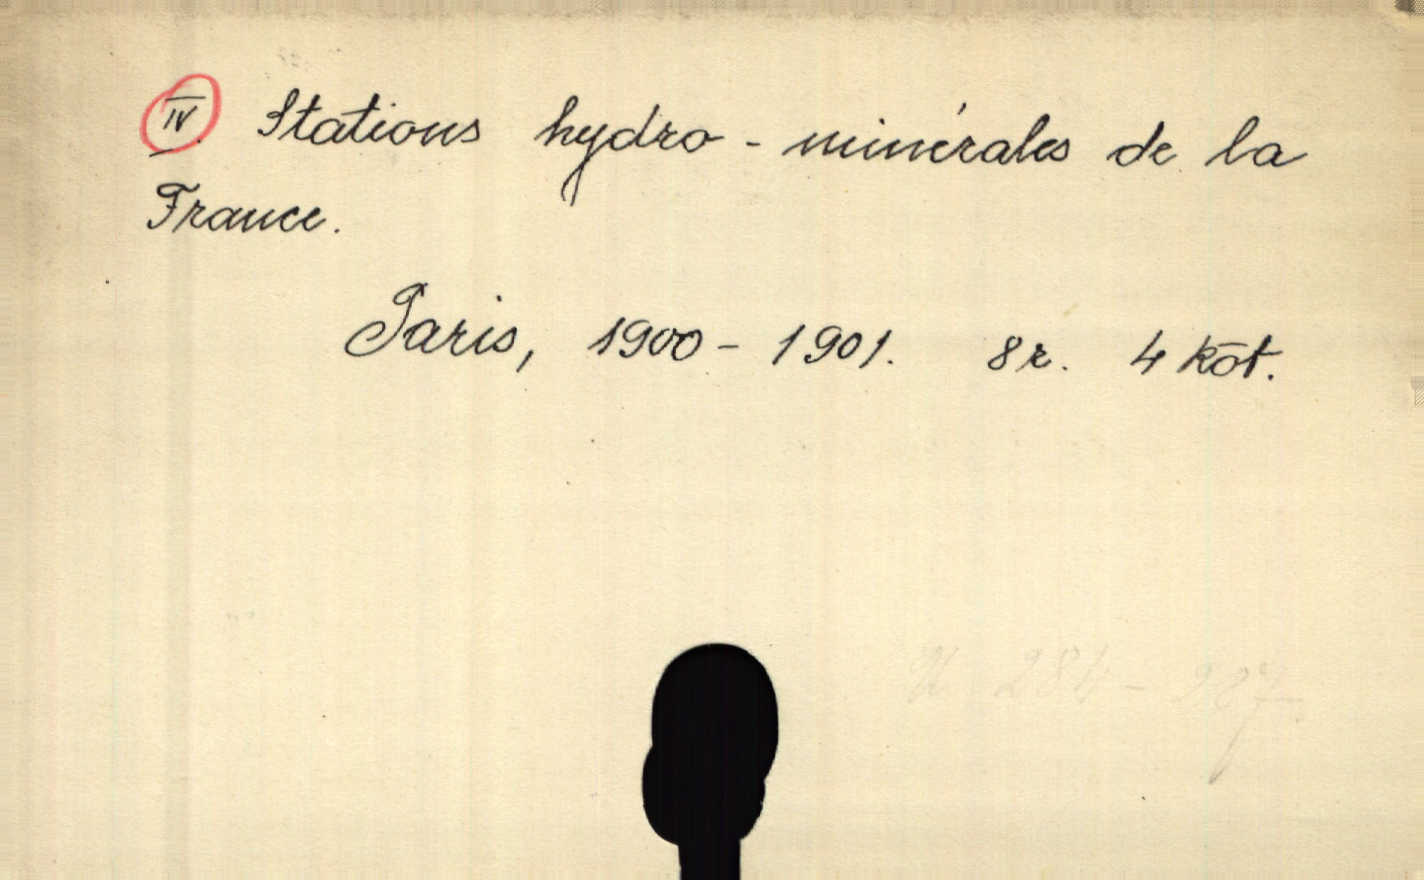 IV. Stations hydro-minérales de la
France.
Paris, 1900-1901. 8r. 4 köt.